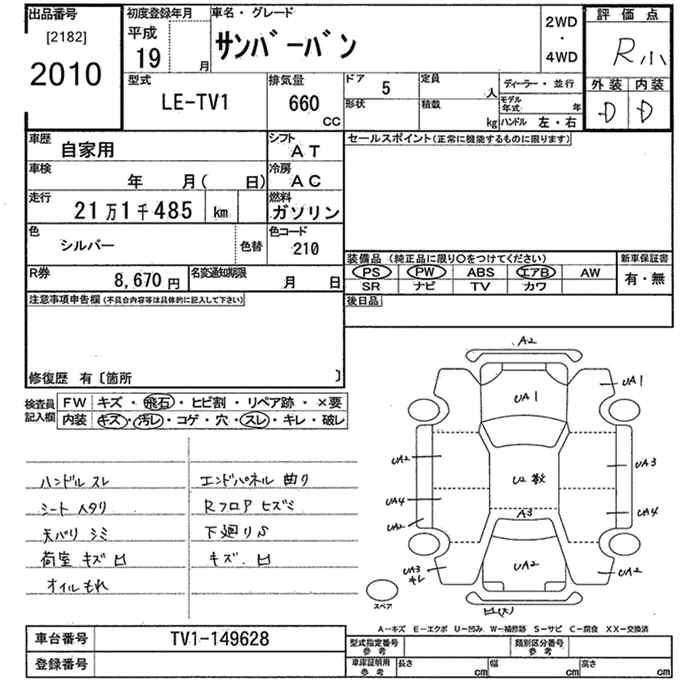 出品番号
[2182]
2010
初度登録年月
平成
19
月
車名・グレード
サンバーバン
2WD
・
4WD
評価点
R小
外装 内装
D D
型式
LE-TV1
排気量
660
CC
ドア
5
形状
定員
人
積載
kg
ディーラー・並行
モデル年式
年
ハンドル 左・右
車歴
自家用
シフト
AT
車検
年 月( 日)
冷房
AC
走行
21万1千485 km
燃料
ガソリン
色
シルバー
色替
色コード
210
R券
8,670円
名変通知期限
月 日
セールスポイント(正常に機能するものに限ります)
装備品(純正品に限り○をつけてください)
PS PW ABS エアB AW
SR ナビ TV カワ
新車保証書
有・無
後日品
注意事項申告欄(不具合内容等は具体的に記入して下さい)
修復歴 有〔箇所 〕
検査員記入欄
FW キズ・飛石・ヒビ割・リペア跡・×要
内装 キズ・汚レ・コゲ・穴・スレ・キレ・破レ
ハンドル スレ
シート ヘタリ
天バリ シミ
荷室 キズ 凹
オイルもれ
エンドパネル 曲り
Rフロア ヒズミ
下廻りS
キズ.凹
A2
UA1
UA1
UA2
U2 数
UA3
UA4
UA4
A3
UA2
UA3
キレ
UA2
UA2
凹(大)
スペア
A－キズ E－エクボ U－凹み W－補修跡 S－サビ C－腐食 XX－交換済
車台番号
TV1-149628
登録番号
型式指定番号
参考
類別区分番号
参考
車庫証明用
参考
長さ cm
幅 cm
高さ cm